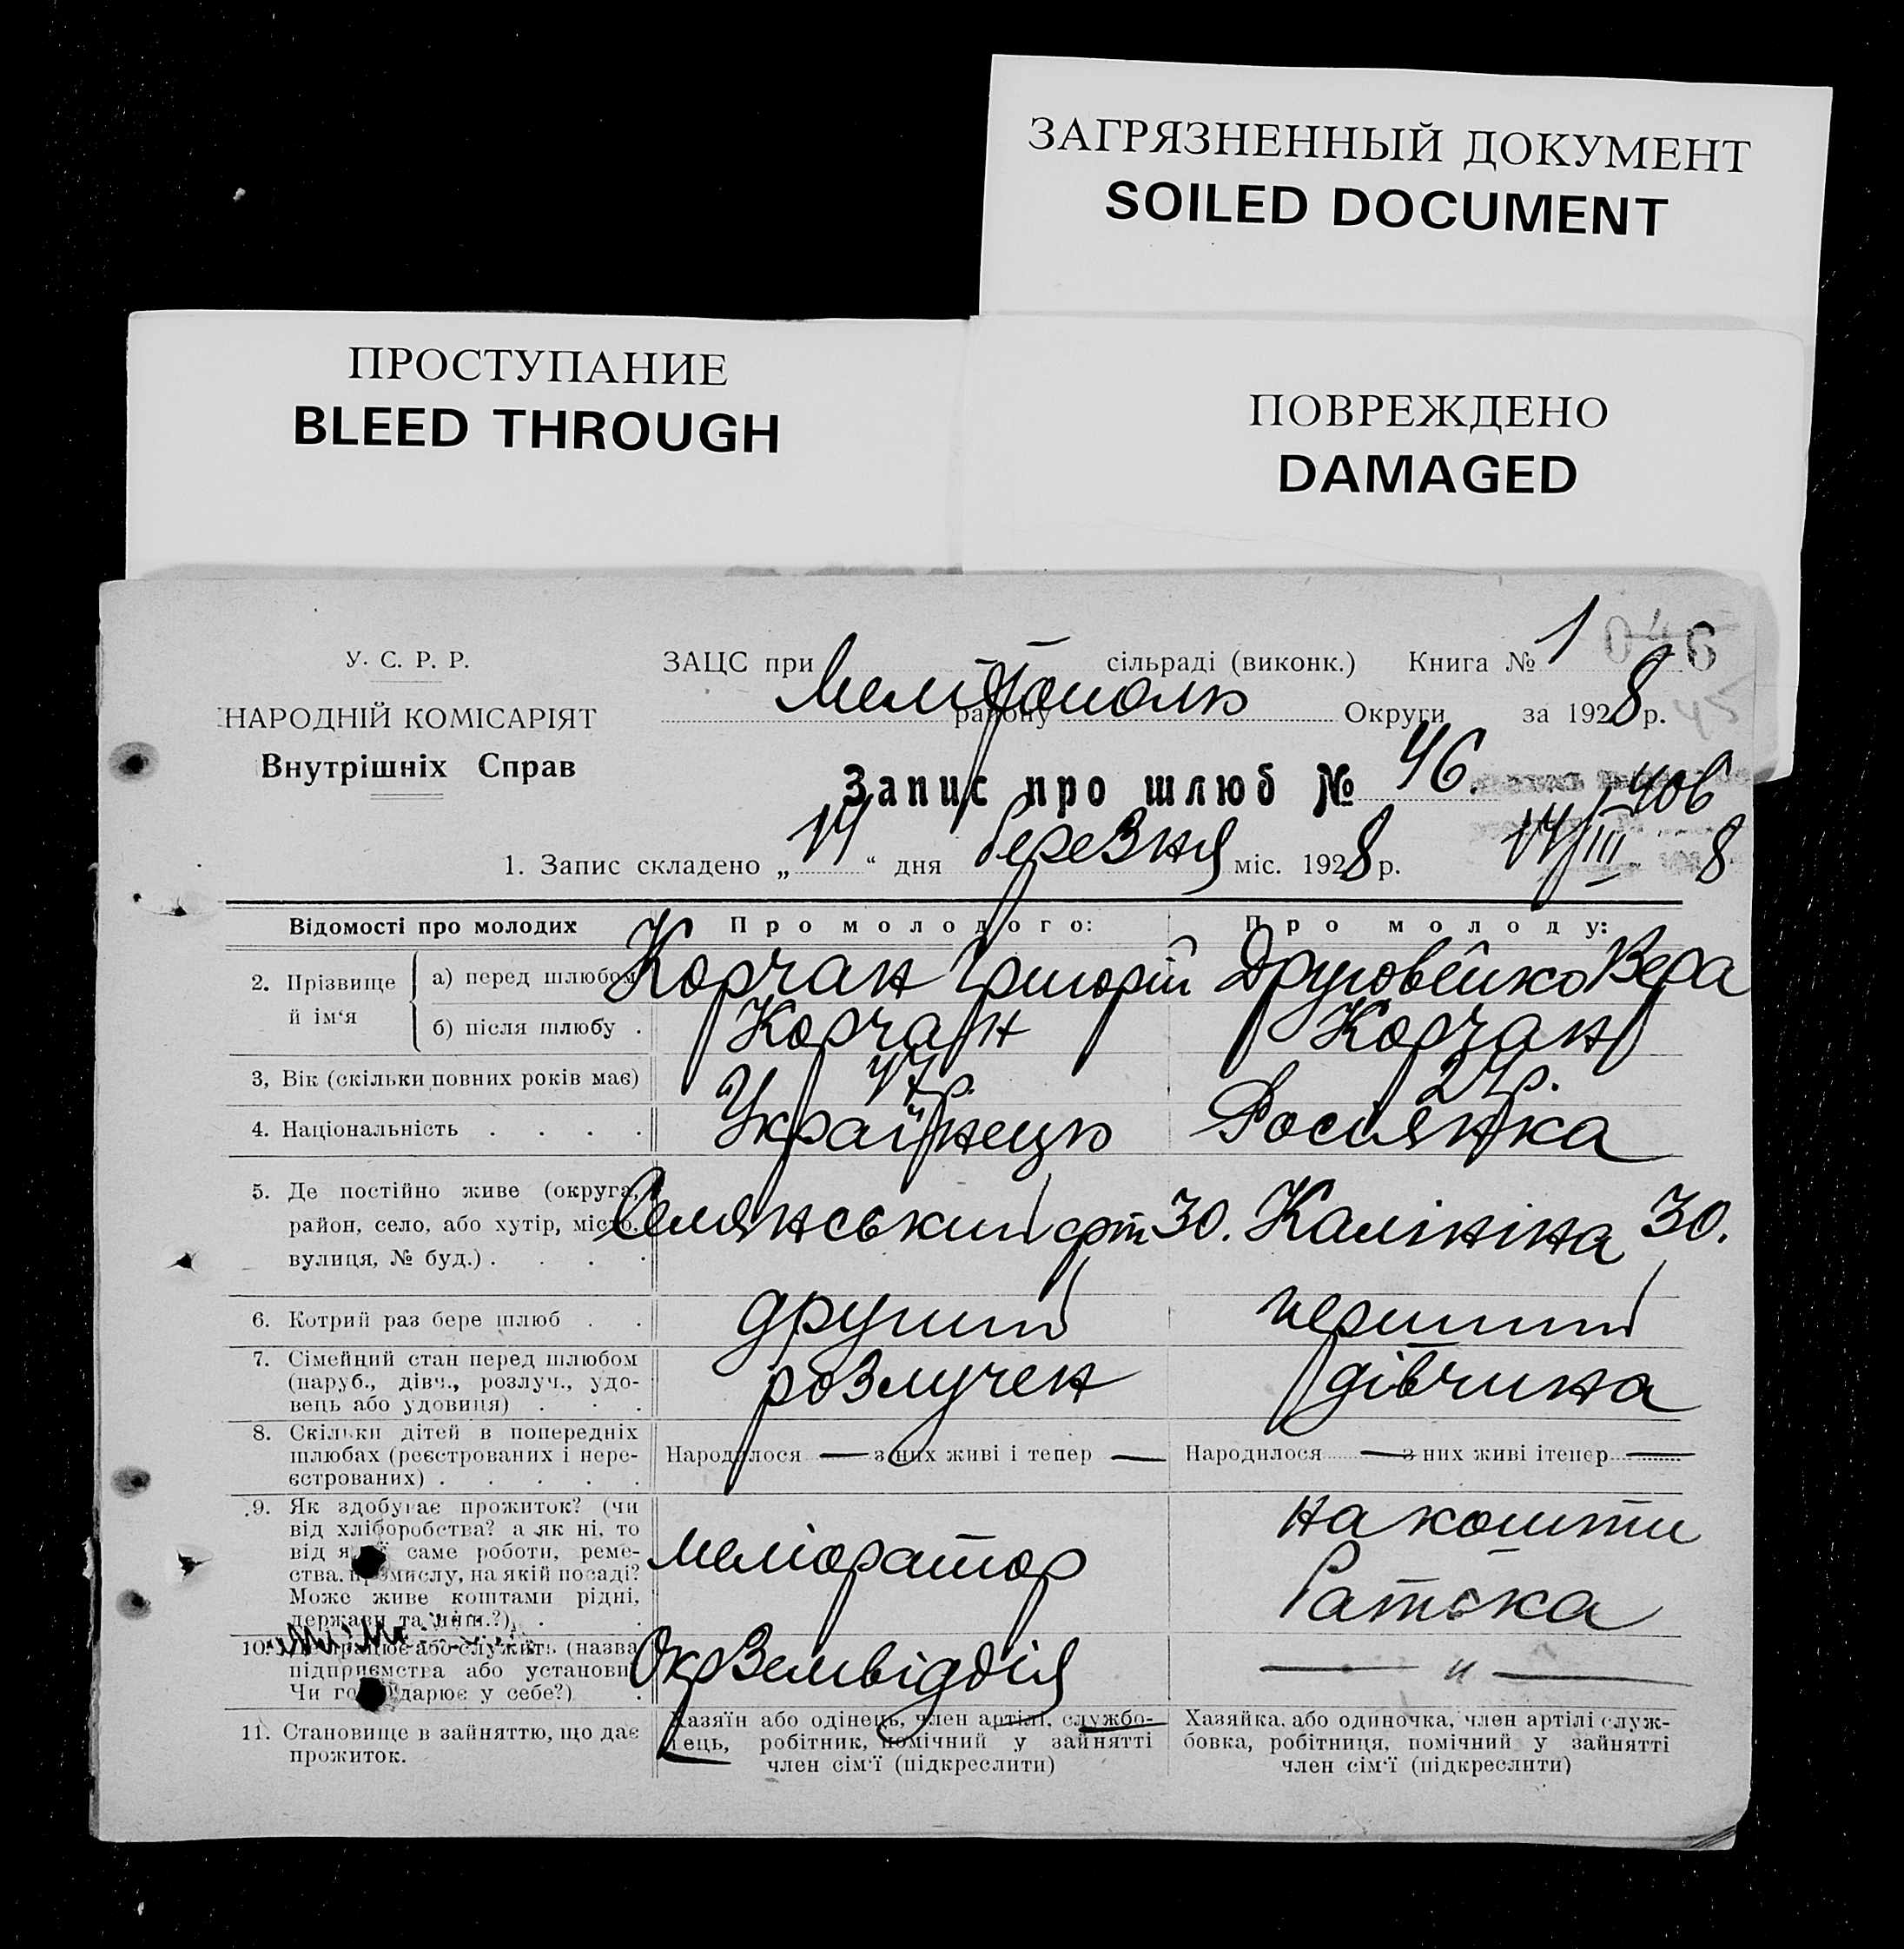 ЗАГРЯЗНЕННЫЙ ДОКУМЕНТ
SOILED DOCUMENT
ПРОСТУПАНИЕ
BLEED THROUGH
ПОВРЕЖДЕНО
DAMAGED
У. С. Р. Р.
НАРОДНІЙ КОМІСАРІЯТ
Внутрішніх Справ
ЗАЦС при сільраді (виконк.) Книга № 1 046
Мелітополь району Округи за 1928 р. 45
Запис про шлюб № 46. 406
14/III 8
1. Запис складено „14“ дня березня міс. 1928 р.
Відомості про молодих Про молодого: Про молоду:
2. Прізвище й ім‘я
а) перед шлюбом Корчан Григорій Друговейко Вера
б) після шлюбу . Корчан Корчан
3, Вік (скільки повних років має) 44 р. 24 р.
4. Національність . . . . Українець Росіянка
5. Де постійно живе (округа,
район, село, або хутір, місто,
вулиця, № буд.) . . . .
30. Калініна 30.
6. Котрий раз бере шлюб . . другий перший
7. Сімейний стан перед шлюбом
(паруб., дівч., розлуч., удо-
вець або удовиця) . . .
розлучен дівчина
8. Скільки дітей в попередніх
шлюбах (реєстрованих і нере-
єстрованих) . . . . .
Народилося — з них живі і тепер — Народилося — з них живі ітепер —
9. Як здобуває прожиток? (чи
від хліборобства? а як ні, то
від якої саме роботи, реме-
ства, промислу, на якій посаді?
Може живе коштами рідні,
держави та инш.?) . .
меліоратор на кошти
батька
10. Де працює або служить (назва
підприємства або установи
Чи господарює у себе?) .
Окрземвідділ — „ —
11. Становище в зайняттю, що дає
прожиток.
Хазяїн або одінець, член артілі, службо-
вець, робітник, помічний у зайнятті
член сім‘ї (підкреслити)
Хазяйка, або одиночка, член артілі служ-
бовка, робітниця, помічний у зайнятті
член сім‘ї (підкреслити)